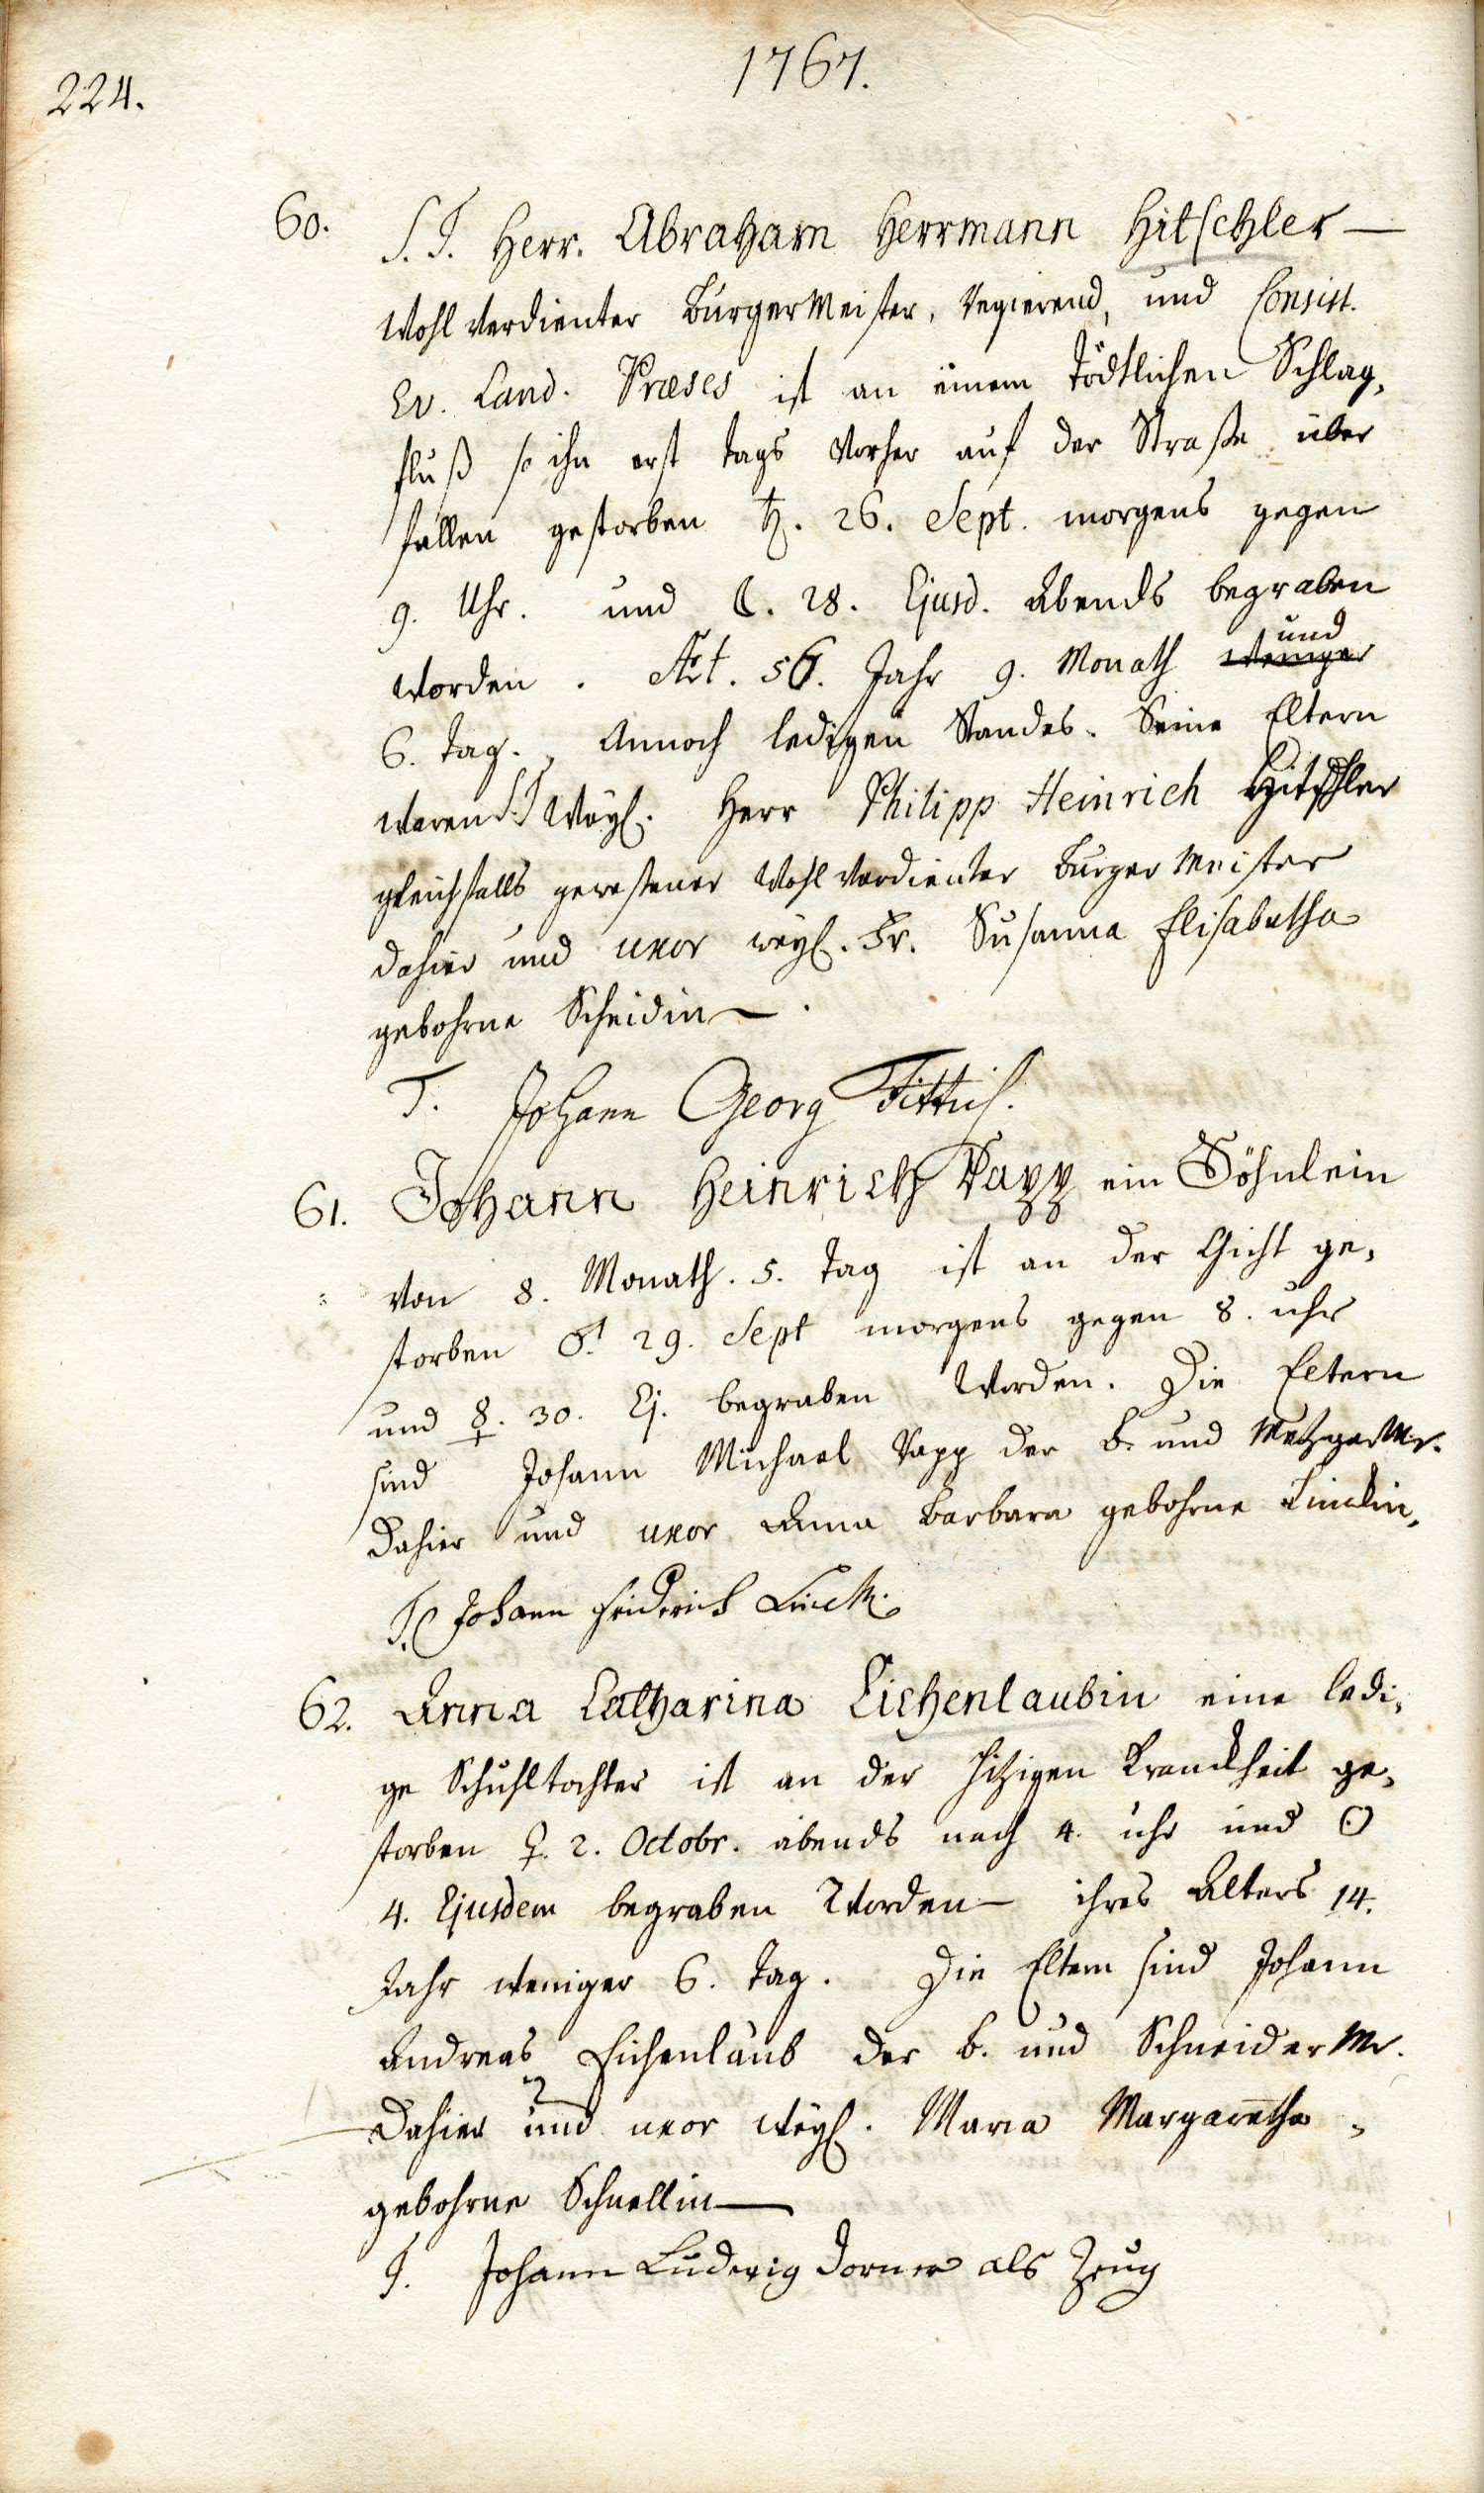 1767.
224.
60. S. T. Herr. Abraham Herrmann Hitschler —
Wohl verdienter BurgerMeister, Regierend, und Consist.
Ev. Land. Præses ist an einem Tödtlichen Schlag,
fluß so ihn erst tags vorher auf der Straße über
fallen gestorben ♄. 26. Sept. morgens gegen
9. Uhr. und ☾. 28. Ejusd. Abends begraben
und
worden. Æt. 56. Jahr 9. Monath weniger
6. Tag. Annoch ledigen Standes. Seine Eltern
waren S. T. Weyl. Herr Philipp Heinrich Hitschler
gleichfalls gewesener Wohl verdienter Burger Meister
dahier und uxor weyl. Fr. Susanna Elisabetha
gebohrne Scheidin —.
T. Johann Georg
61. Johann Heinrich Papp ein Söhnlein
von 8. Monath. 5. Tag ist an der Gicht ge,
storben ♂. 29. Sept morgens gegen 8. uhr
und ☿. 30. Ej. begraben Worden. Die Eltern
sind Johann Michael Papp der B. und MetzgerMr.
Dahier und uxor Anna Barbara gebohrne Linckin,
T. Johann Friderich Linck.
62. Anna Catharina Eichenlaubin eine ledi,
ge Schuhltochter ist an der hitzigen Kranckheit ge,
storben ♀. 2. Octobr. abends nach 4. uhr und ☉
4. Ejusdem begraben Worden — ihres Alters 14.
Jahr weniger 6. Tag. Die Eltern sind Johann
Andreas Eichenlaub der B. und SchneiderMr.
Dahier und uxor weyl. Maria Margaretha,
gebohrne Schnellin —
T. Johann Ludwig Dorner als Zeug